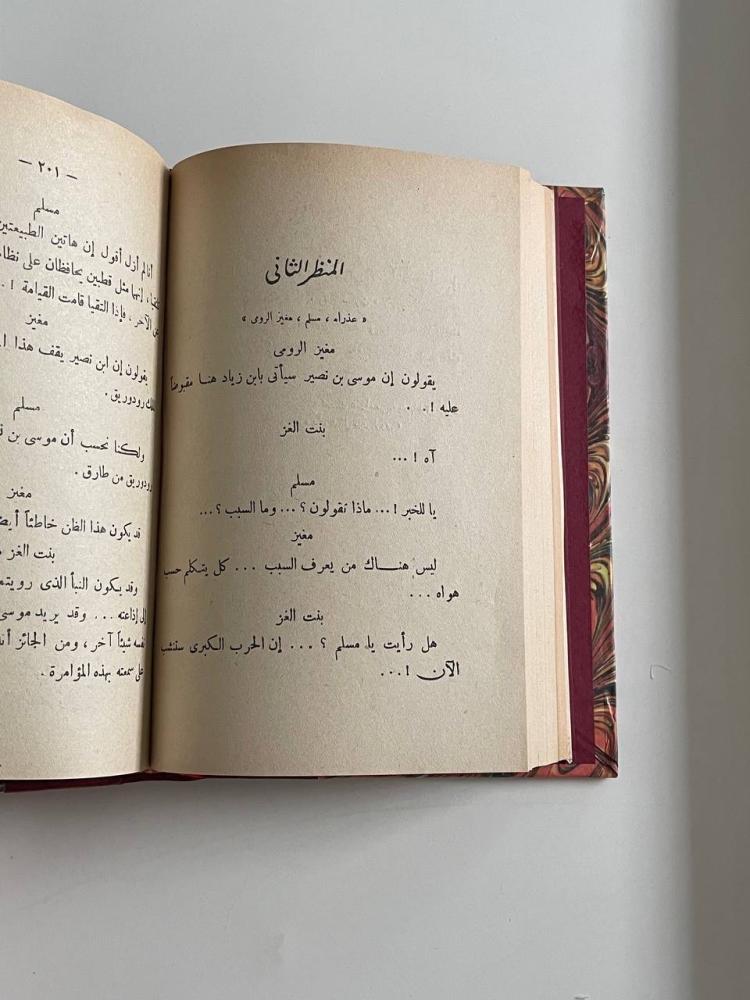 المنظر الثانى
« عذراء ، مسلم ، مغيز الرومى »
مغيز الرومى
يقولون إن موسى بن نصير سيأتى بابن زياد هنا مقبوضاً
عليه ! . .
بنت الغز
آه ! ...
مسلم
يا للخبر ! ... ماذا تقولون ؟ ... وما السبب ؟ ...
مغيز
ليس هنــاك من يعرف السبب ... كل يتكلم حسب
هواه ...
بنت الغز
هل رأيت يا مسلم ؟ ... إن الحرب الكبرى ستنشب
الآن ! ...
— ٢٠١ —
مسلم
أنا لم أزل أقول إن هاتين الطبيعتين
إنهما مثل قطبين يحافظان على
الآخر ، فإذا التقيا قامت القيامة ! .
مغيز
يقولون إن ابن نصير يقف هذا
رودوريق .
مسلم
ولكنا نحسب أن موسى بن
رودوريق من طارق .
مغيز
قد يكون هذا الظن خاطئاً
بنت الغز
وقد يكون النبأ الذى
إلى إذاعته ... وقد يريد موسى
شيئاً آخر ، ومن الجائز
على سمعته بهذه المؤامرة .